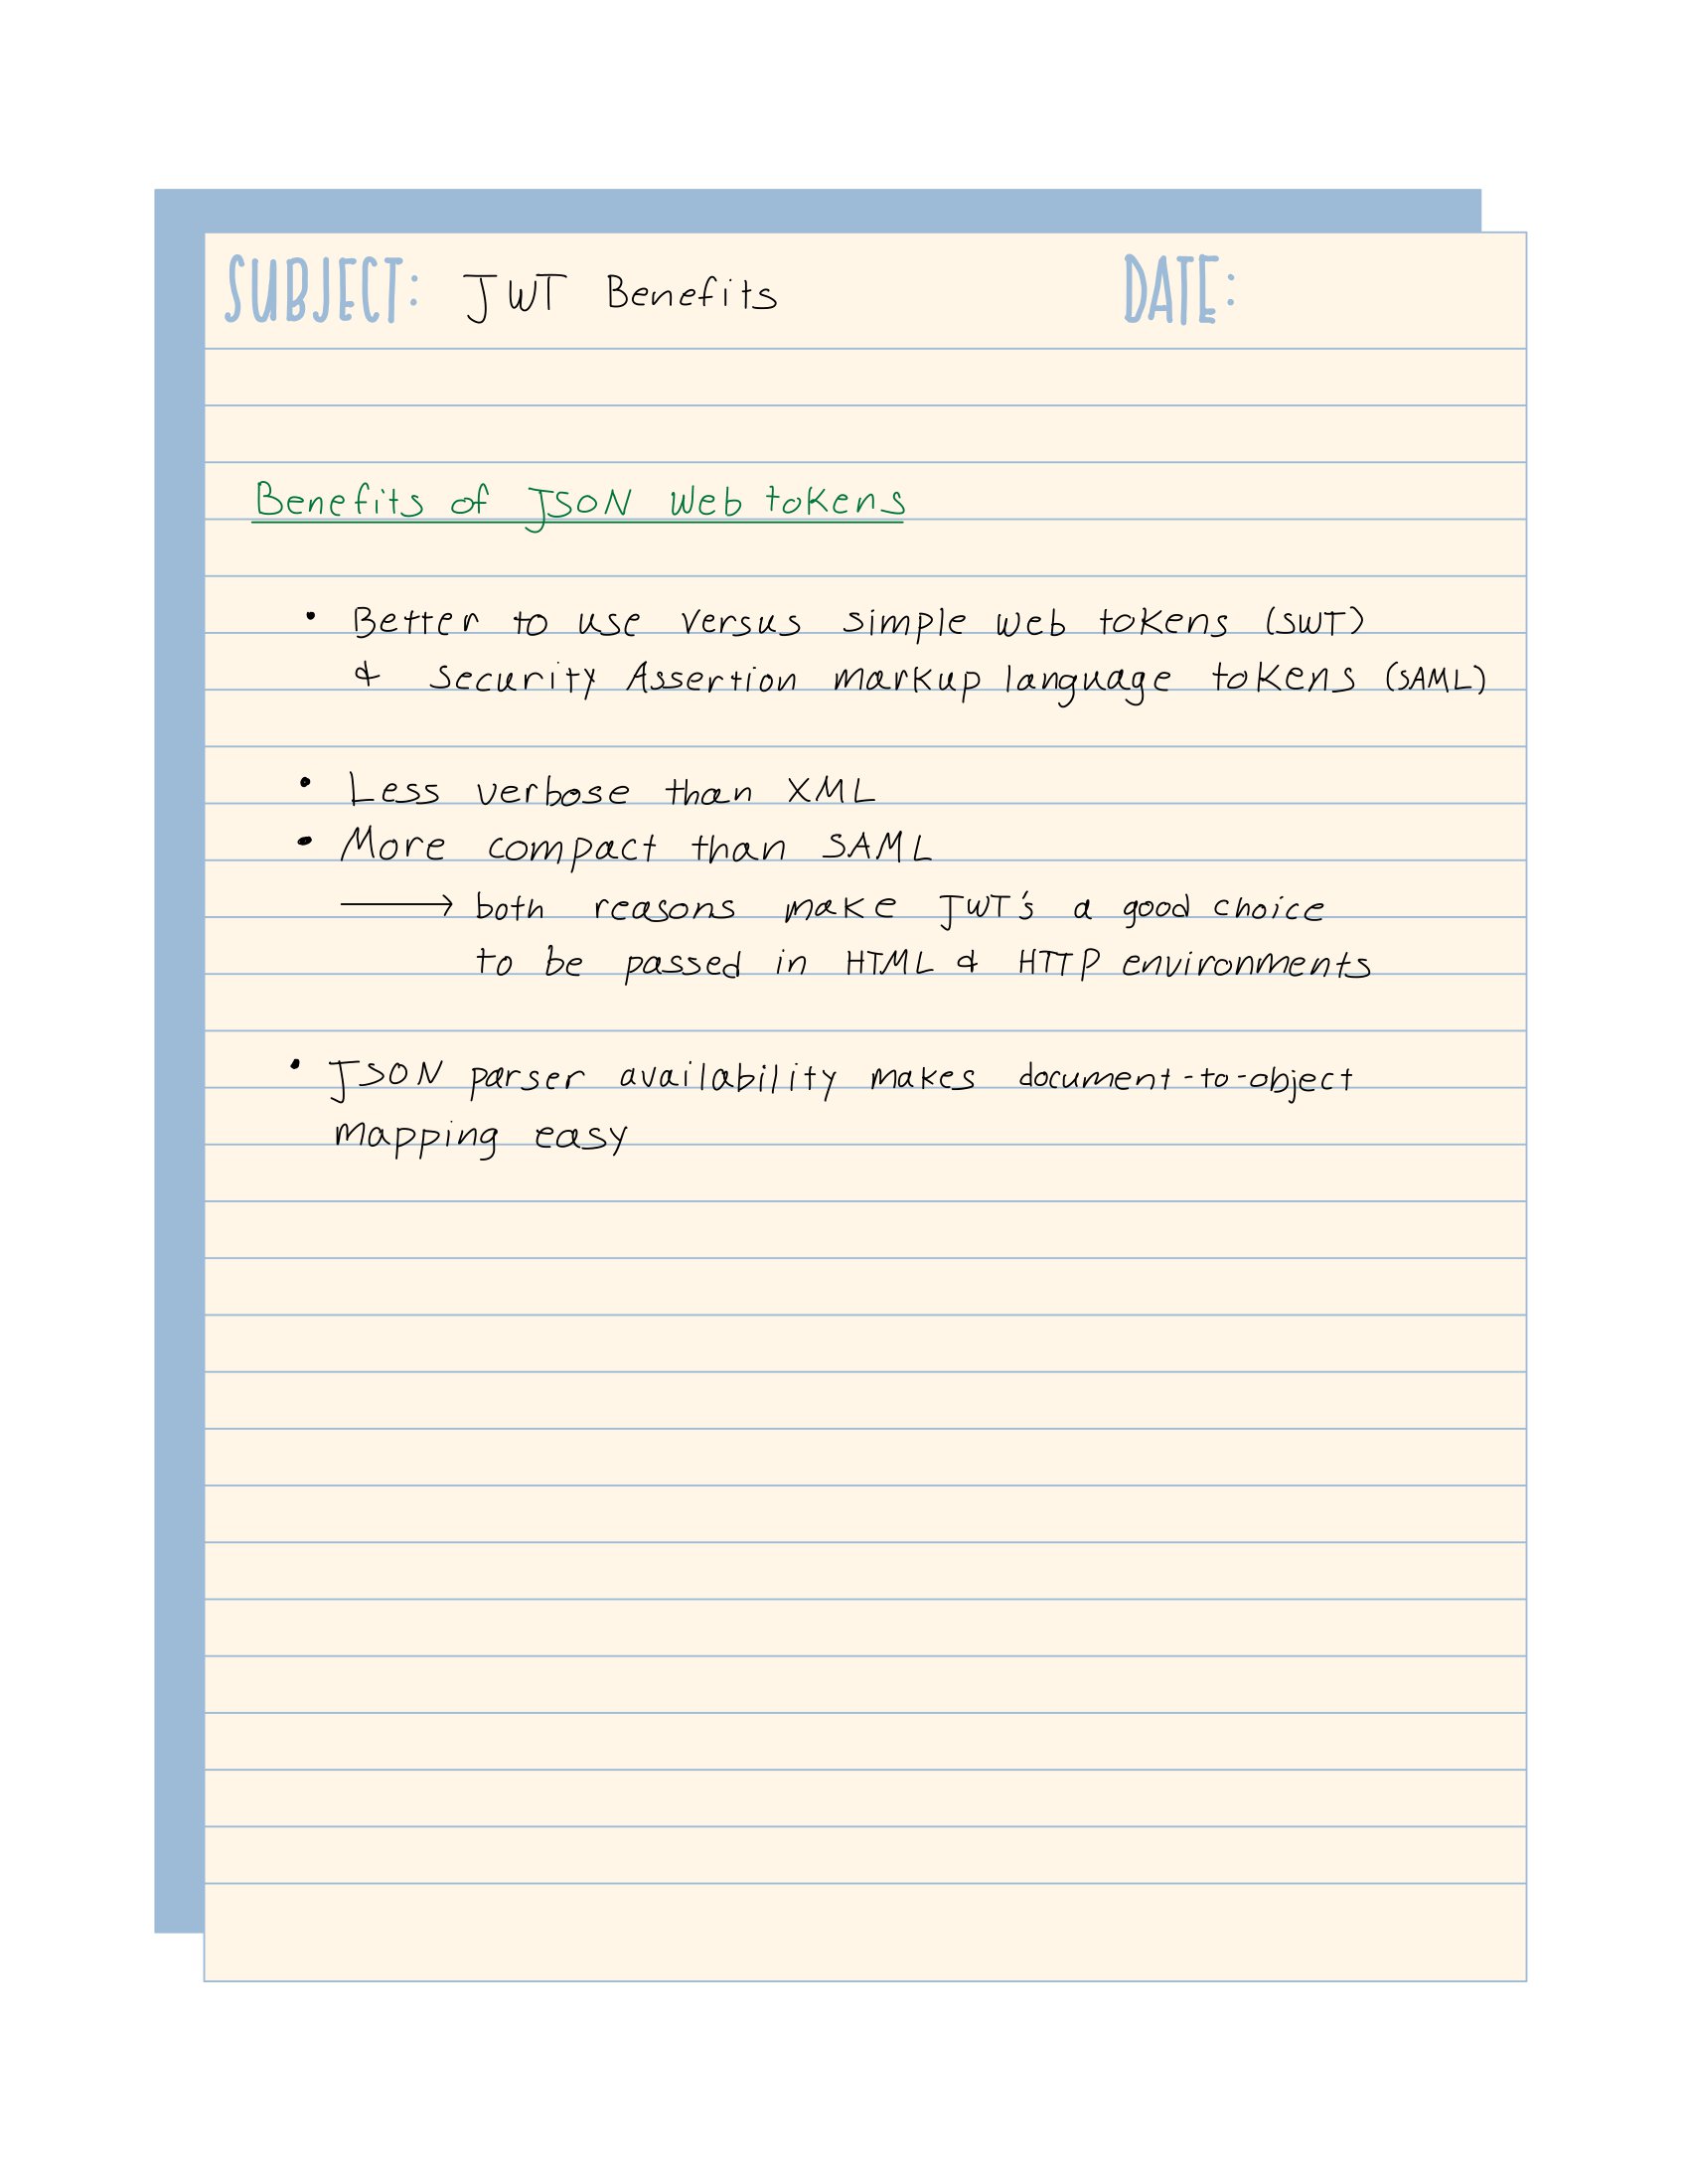 SUBJECT: JWT Benefits DATE:
Benefits of JSON Web tokens
• Better to use versus simple web tokens (SWT)
& Security Assertion markup language tokens (SAML)
• Less verbose than XML
• More compact than SAML
→ both reasons make JWT's a good choice
to be passed in HTML & HTTP environments
• JSON parser availability makes document-to-object
mapping easy